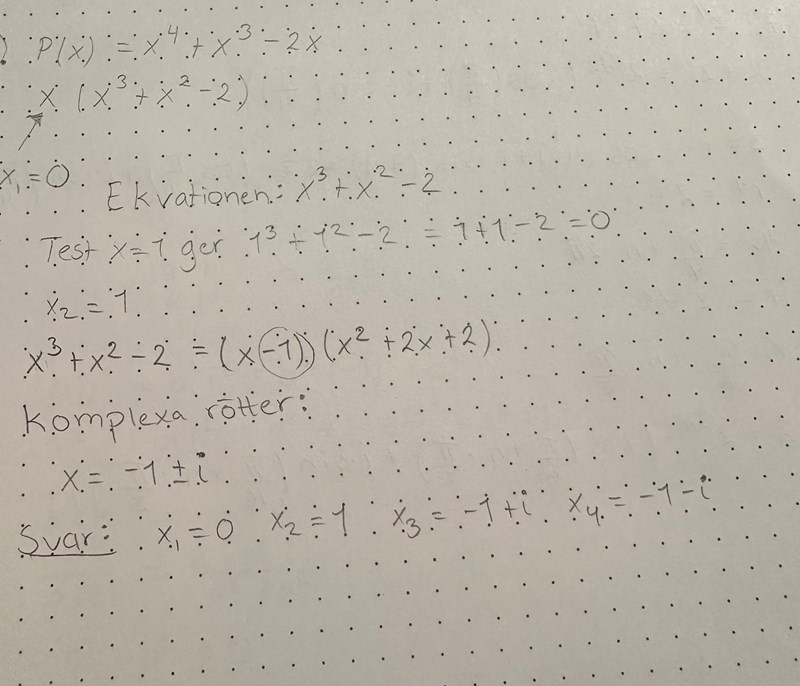 ) P(x) = x⁴ + x³ - 2x
x (x³ + x² - 2)
x₁ = 0
Ekvationen: x³ + x² - 2
Test x = 1 ger 1³ + 1² - 2 = 1 + 1 - 2 = 0
x₂ = 1
x³ + x² - 2 = (x - 1) (x² + 2x + 2)
Komplexa rötter:
x = -1 ± i
Svar: x₁ = 0 x₂ = 1 x₃ = -1 + i x₄ = -1 - i